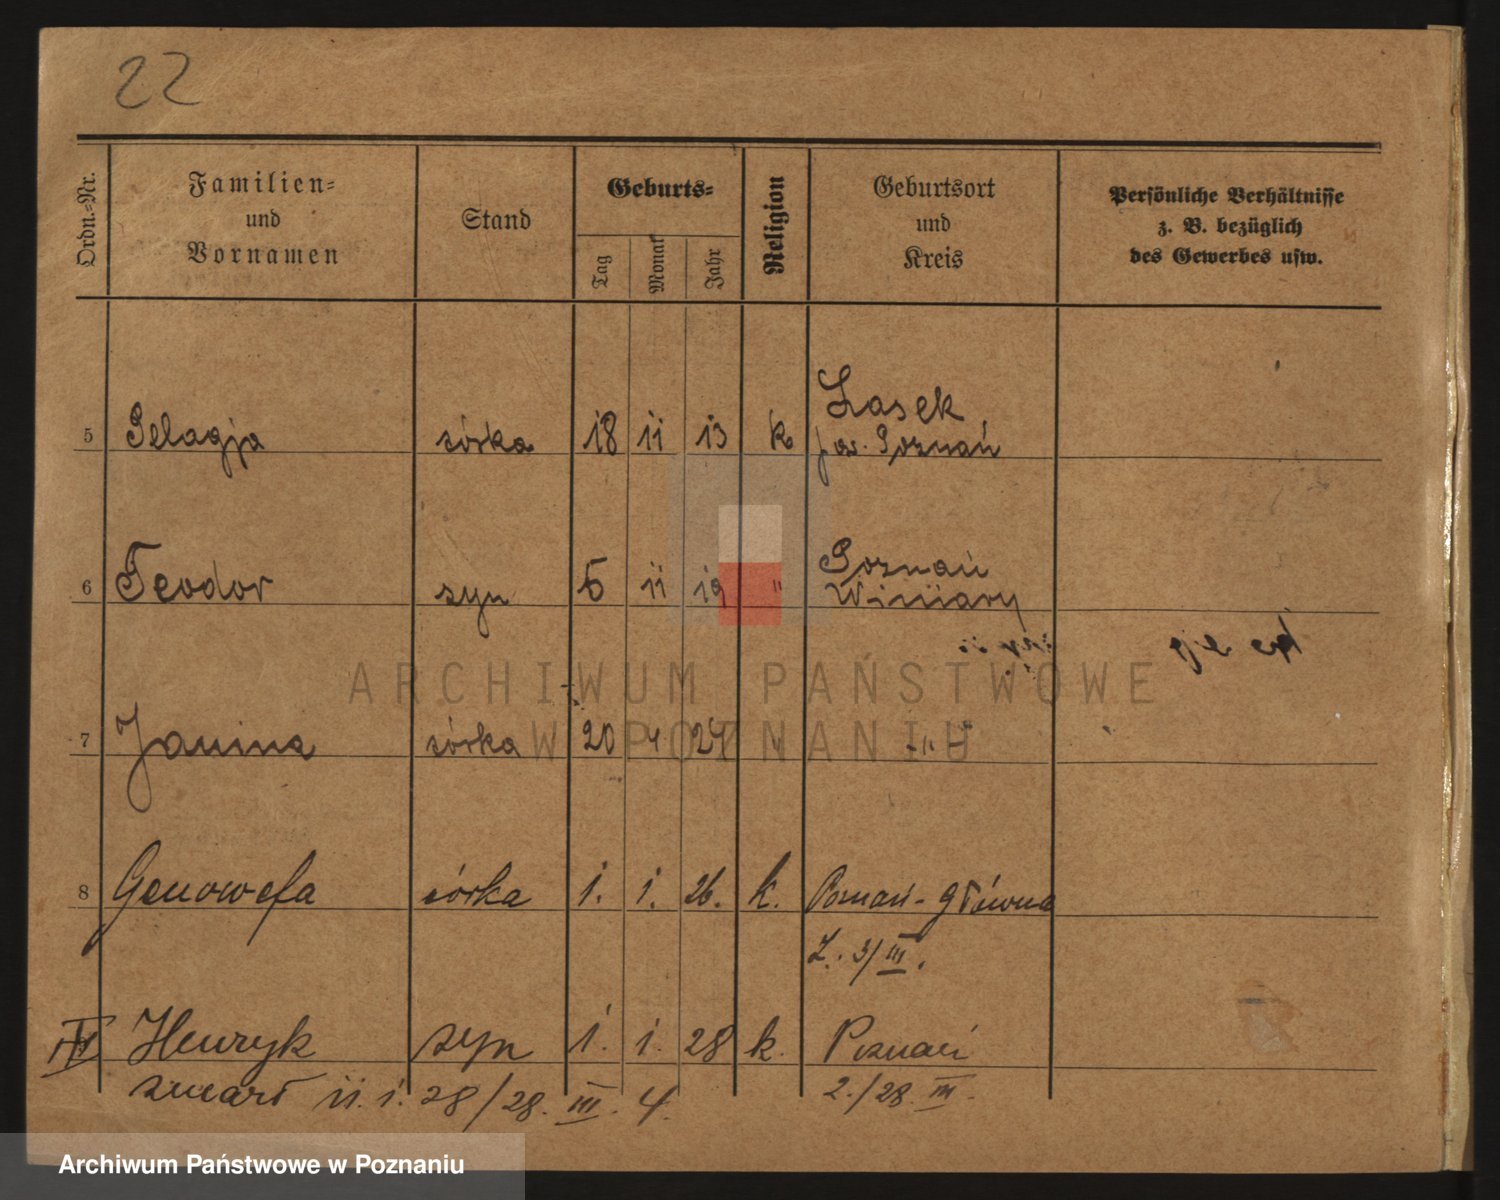 22
Ordn.-Nr.
Familien-
und
Vornamen
Stand
Geburts-
Tag
Monat
Jahr
Religion
Geburtsort
und
Kreis
Persönliche Verhältnisse
z. B. bezüglich
des Gewerbes usw.
Lasek
5 Pelagja córka 18 11 13 k pow. Poznań
Poznań
6 Teodor syn 5 11 19 " Winiary
7 Janina córka 20 4 24 " -"-
8 Genowefa córka 1. 1. 26. k. Poznań-Główna
Z. 3/III.
Henryk syn 1. 1. 28 k. Poznań
zmarł 11. 1. 28/28. III. 4. 2./28. III.
ARCHIWUM PAŃSTWOWE
W POZNANIU
Archiwum Państwowe w Poznaniu